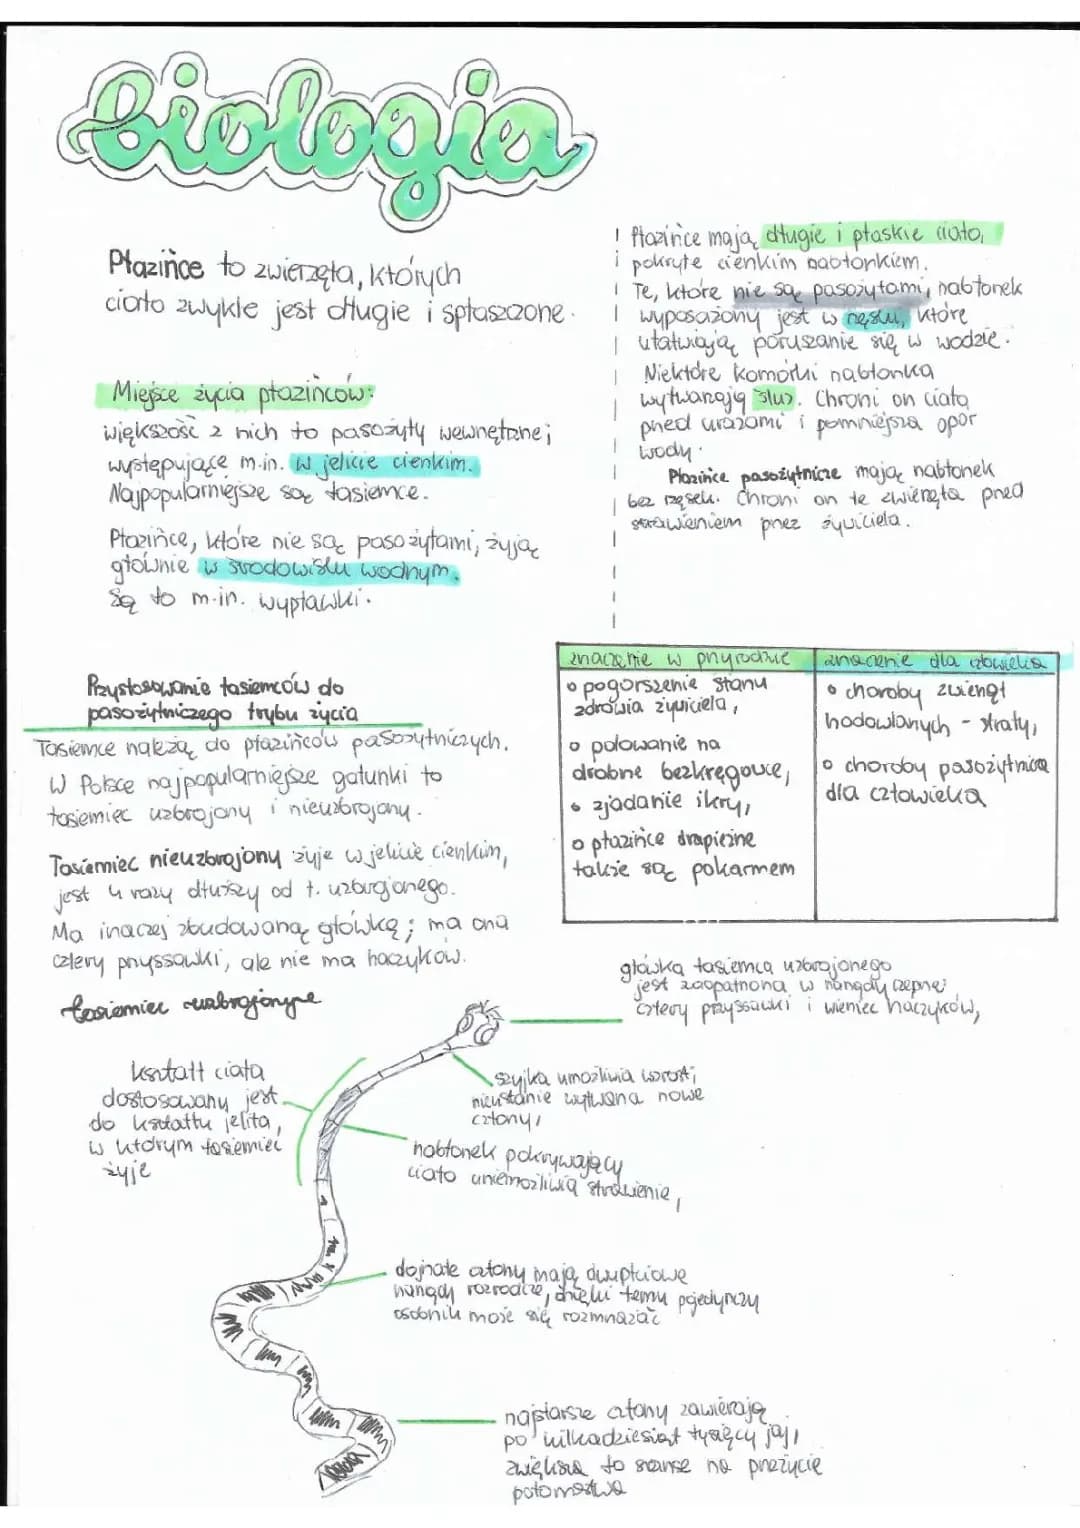 biologia
Płazińce to zwierzęta, których
ciało zwykle jest długie i spłaszczone.
Miejsce życia płazińców:
większość z nich to pasożyty wewnętrzne;
występujące m.in. w jelicie cienkim.
Najpopularniejsze są tasiemce.
Płazińce, które nie są pasożytami, żyją
głównie w środowisku wodnym.
Są to m.in. wypławki.
Płazińce mają długie i płaskie ciało,
pokryte cienkim nabłonkiem.
Te, które nie są pasożytami, nabłonek
wyposażony jest w rzęski, które
ułatwiają poruszanie się w wodzie.
Niektóre komórki nabłonka
wytwarzają śluz. Chroni on ciało
przed urazami i pomniejsza opór
wody.
Płazińce pasożytnicze mają nabłonek
bez rzęsek. Chroni on te zwierzęta przed
strawieniem przez żywiciela.
Przystosowanie tasiemców do
pasożytniczego trybu życia
Tasiemce należą do płazińców pasożytniczych.
W Polsce najpopularniejsze gatunki to
tasiemiec uzbrojony i nieuzbrojony.
Tasiemiec nieuzbrojony żyje w jelicie cienkim,
jest 4 razy dłuższy od t. uzbrojonego.
Ma inaczej zbudowaną główkę; ma ona
cztery przyssawki, ale nie ma haczyków.
znaczenie w przyrodzie
• pogorszenie stanu
zdrowia żywiciela,
• polowanie na
drobne bezkręgowce,
• zjadanie ikry,
• płazińce drapieżne
także są pokarmem
znaczenie dla człowieka
• choroby zwierząt
hodowlanych - straty,
• choroby pasożytnicze
dla człowieka
tasiemiec
główka tasiemca uzbrojonego
jest zaopatrzona w narządy czepne:
cztery przyssawki i wieniec haczyków,
kształt ciała
dostosowany jest
do kształtu jelita,
w którym tasiemiec
żyje
szyjka umożliwia wzrost;
nieustanie wytwarza nowe
człony,
nabłonek pokrywający
ciało uniemożliwia strawienie,
dojrzałe człony mają dwupłciowe
narządy rozrodcze, dzięki temu pojedynczy
osobnik może się rozmnażać
najstarsze człony zawierają
po kilkadziesiąt tysięcy jaj,
zwiększa to szanse na przeżycie
potomstwa